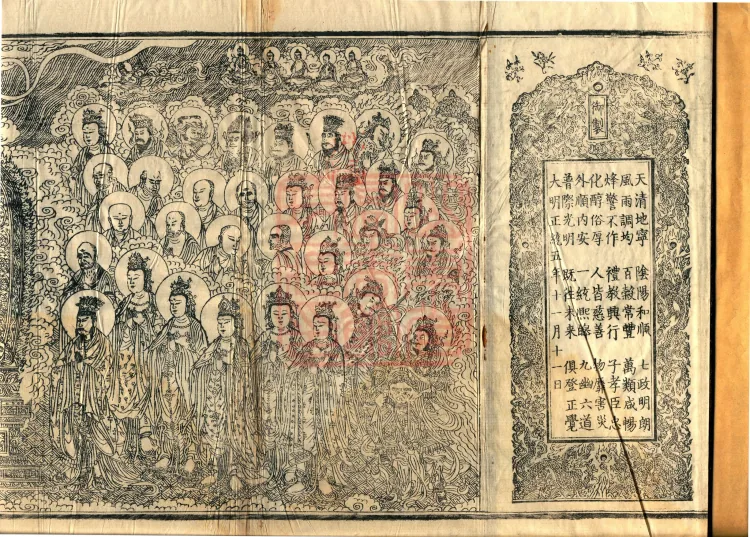 御製
天清地寧 隂陽和順 七政明朗
風雨調均 百糓常豐 萬類咸暢
烽警不作 禮教興行 子孝臣忠
化醇俗厚 人皆慈善 物靡害災
外順內安 一統熈皥 九幽六道
普際光明 既往未來 俱登正覺
大明正統五年十一月十一日